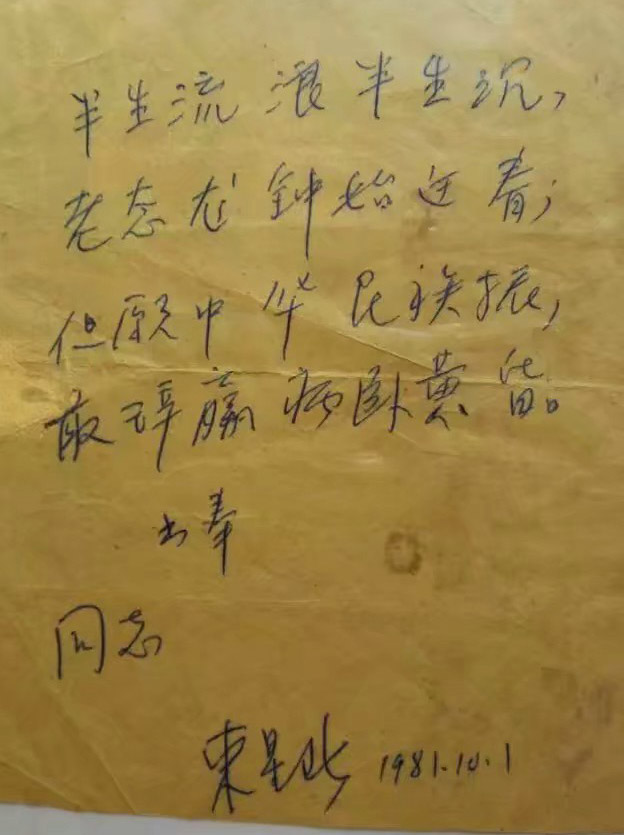 半生流浪半生沉,
老态龙钟始迎春;
但愿中华民族振,
敢辞羸病卧黄昏。
书奉
同志
束星北 1981.10.1